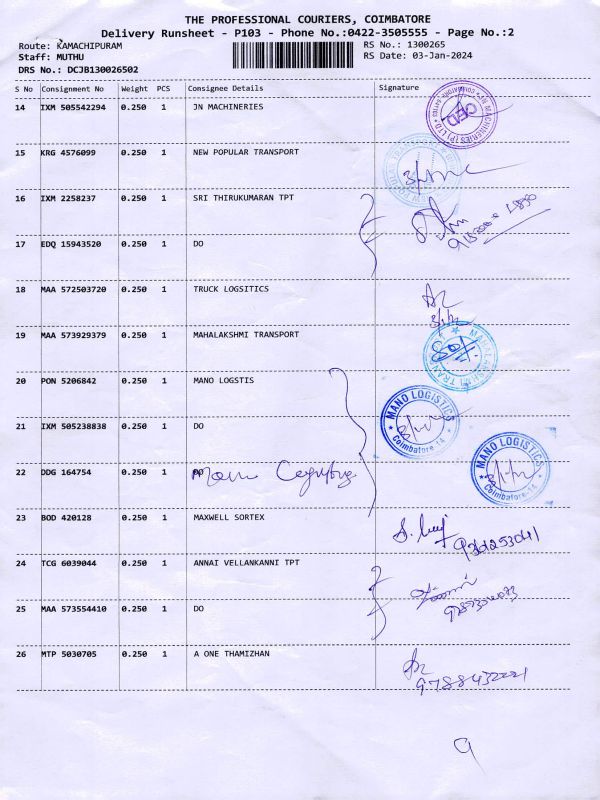 THE PROFESSIONAL COURIERS, COIMBATORE
Delivery Runsheet - P103 - Phone No.:0422-3505555 - Page No.:2
Route: KAMACHIPURAM RS No.: 1300265
Staff: MUTHU RS Date: 03-Jan-2024
DRS No.: DCJB130026502
S No Consignment No Weight PCS Consignee Details Signature
14 IXM 505542294 0.250 1 JN MACHINERIES
15 KRG 4576099 0.250 1 NEW POPULAR TRANSPORT
16 IXM 2258237 0.250 1 SRI THIRUKUMARAN TPT
17 EDQ 15943520 0.250 1 DO
18 MAA 572503720 0.250 1 TRUCK LOGSITICS
19 MAA 573929379 0.250 1 MAHALAKSHMI TRANSPORT
20 PON 5206842 0.250 1 MANO LOGSTIS
MANO LOGISTICS
Coimbatore-14
21 IXM 505238838 0.250 1 DO
MANO LOGISTICS
Coimbatore-14
22 DDG 164754 0.250 1 DO
23 BOD 420128 0.250 1 MAXWELL SORTEX
24 TCG 6039044 0.250 1 ANNAI VELLANKANNI TPT
25 MAA 573554410 0.250 1 DO
26 MTP 5030705 0.250 1 A ONE THAMIZHAN